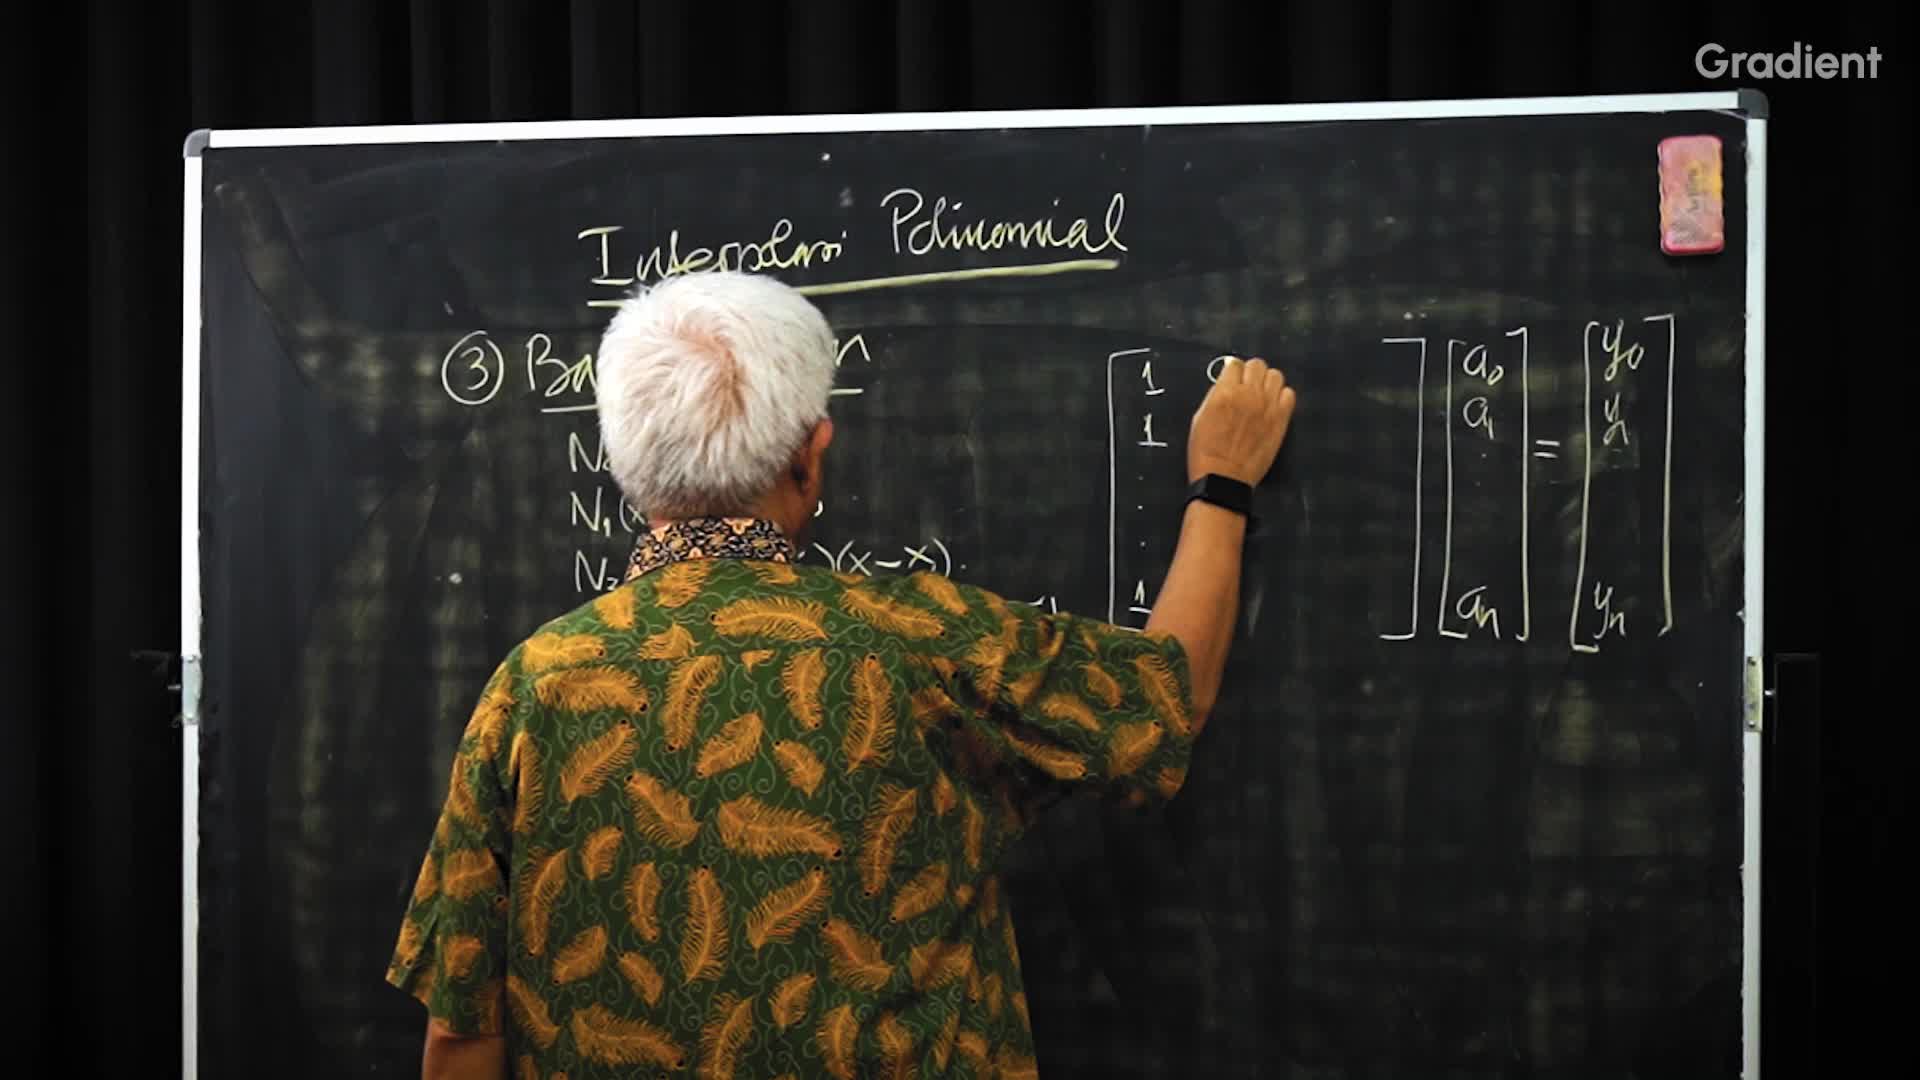 Gradient
Interpolasi Polinomial
③ Ba n
N
N₁(x
N₂ )(x-x).
1
1
.
.
.
1
a₀
a₁
.
aₙ
=
y₀
y₁
yₙ